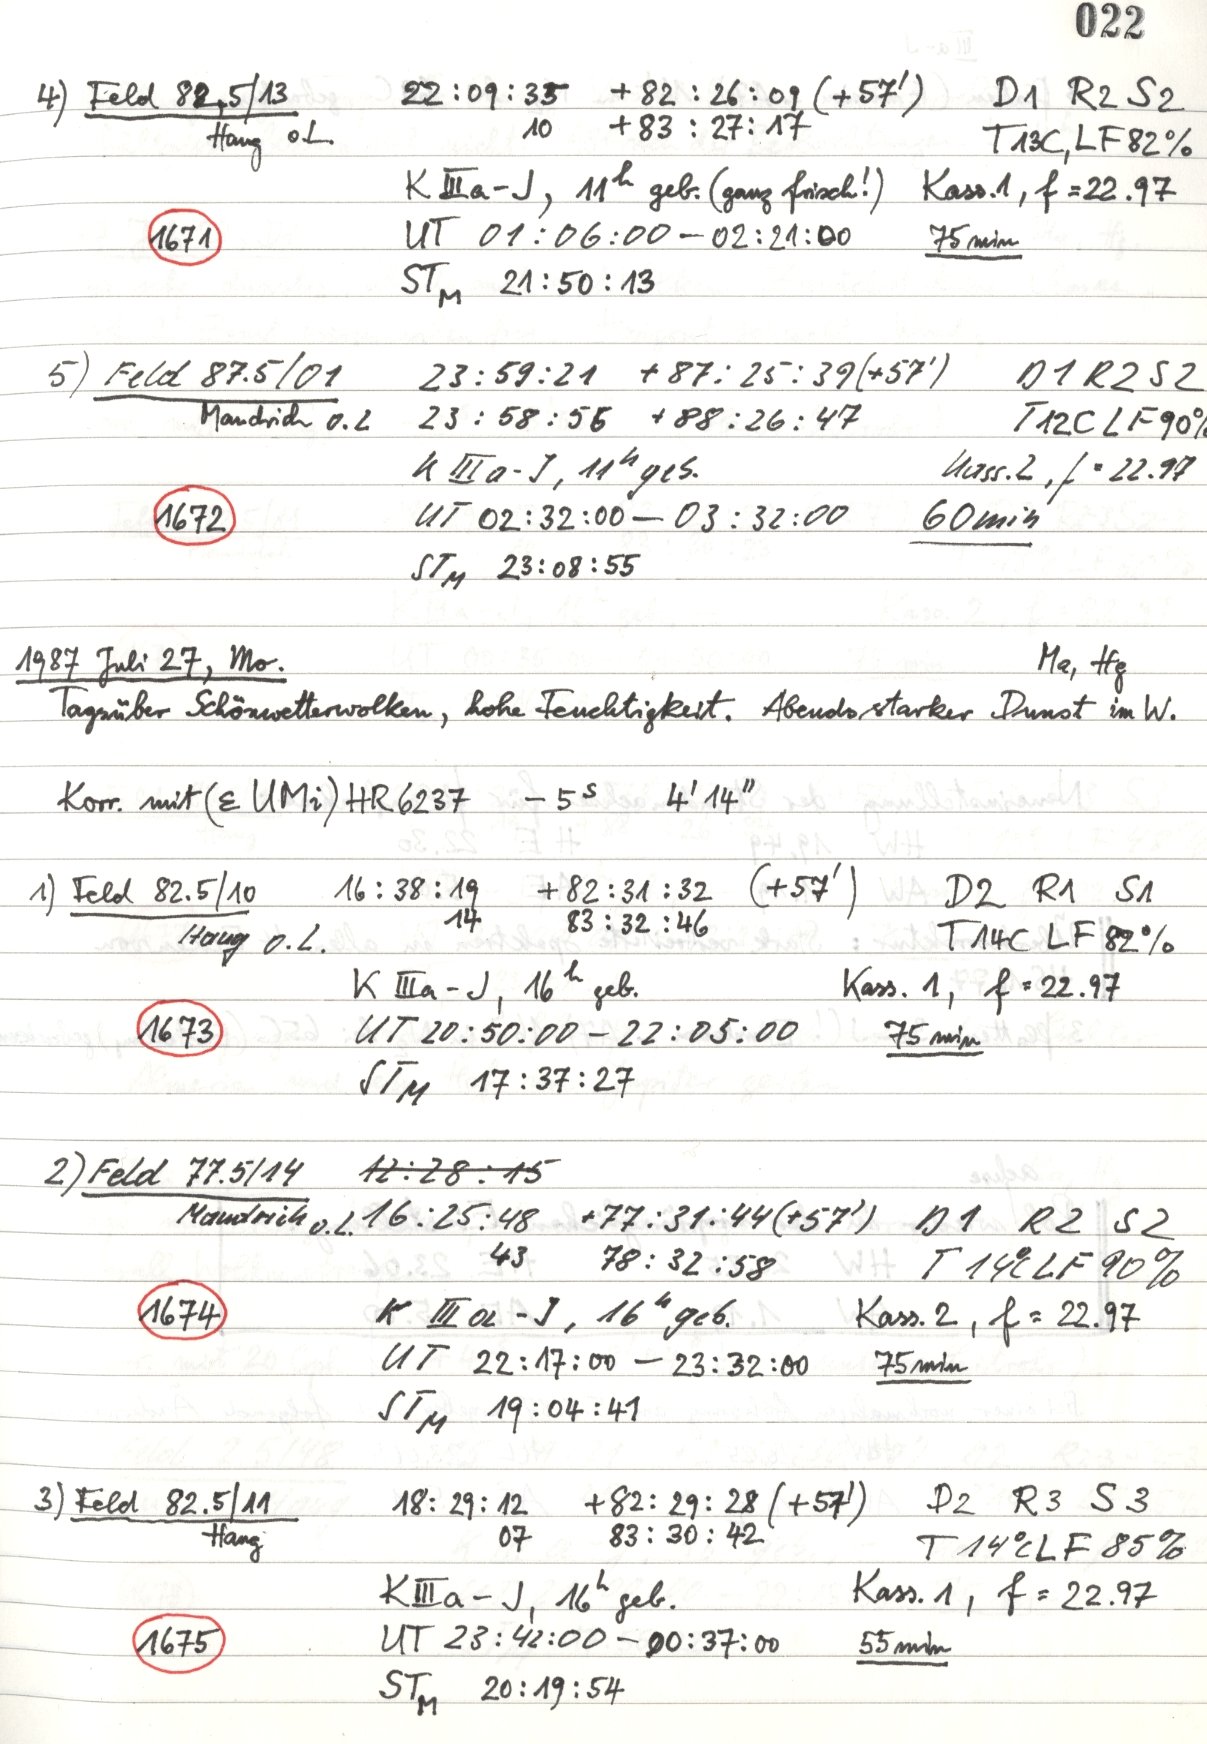 022
4) Feld 82.5/13 22:09:35 +82:26:09 (+57') D1 R2 S2
Haug o.L. 10 +83:27:17 T13C, LF82%
K IIIa-J, 11h geb. (ganz frisch!) Kass.1, f=22.97
1671 UT 01:06:00 – 02:21:00 75min
STM 21:50:13
5) Feld 87.5/01 23:59:21 +87:25:39 (+57') D1 R2 S2
Mandrich o.L 23:58:56 +88:26:47 T12C LF90%
K IIIa-J, 11h geb. Kass.2, f=22.97
1672 UT 02:32:00 – 03:32:00 60min
STM 23:08:55
1987 Juli 27, Mo. Ma, Hg
Tagsüber Schönwetterwolken, hohe Feuchtigkeit. Abends starker Dunst im W.
Korr. mit (ε UMi) HR6237 -5s 4'14"
1) Feld 82.5/10 16:38:19 +82:31:32 (+57') D2 R1 S1
Haug o.L. 14 83:32:46 T14C LF82%
K IIIa-J, 16h geb. Kass. 1, f=22.97
1673 UT 20:50:00 – 22:05:00 75min
STM 17:37:27
2) Feld 77.5/14 12:28:15
Mandrich o.L. 16:25:48 +77:31:44 (+57') D1 R2 S2
43 78:32:58 T 14°C LF 90%
1674 K IIIa-J, 16h geb. Kass.2, f=22.97
UT 22:17:00 – 23:32:00 75min
STM 19:04:41
3) Feld 82.5/11 18:29:12 +82:29:28 (+57') D2 R3 S3
Haug 07 83:30:42 T 14°C LF 85%
K IIIa-J, 16h geb. Kass.1, f=22.97
1675 UT 23:42:00 – 00:37:00 55min
STM 20:19:54